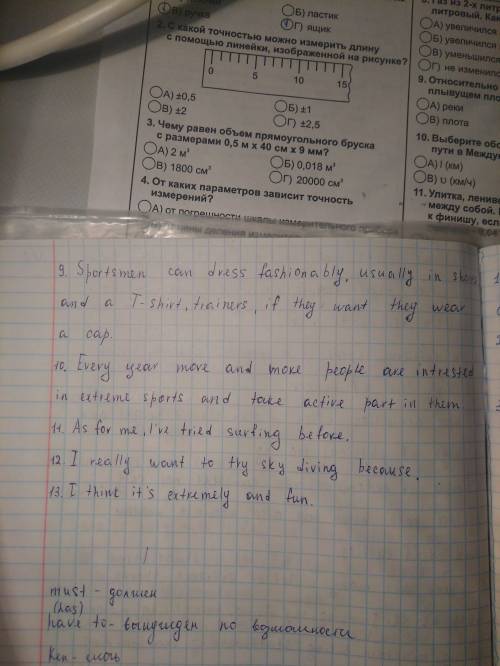 В) ручка
Б) ластик
Г) ящик
2. С какой точностью можно измерить длину
с помощью линейки, изображенной на рисунке?
0 5 10 15
А) ±0,5
Б) ±1
В) ±2
Г) ±2,5
3. Чему равен объем прямоугольного бруска
с размерами 0,5 м х 40 см х 9 мм?
А) 2 м³
Б) 0,018 м³
В) 1800 см³
Г) 20000 см³
4. От каких параметров зависит точность
измерений?
А) от погрешности шкалы измерительного
деления
8. Газ из 2-х
литровый.
А) увеличился
Б) увеличился
В) уменьшился
Г) не изменился
9. Относительно
плывущем
А) реки
В) плота
10. Выберите
пути в
А) l (км)
В) υ (км/ч)
11. Улитка,
между собой.
к финишу, если
9. Sportsmen can dress fashionably, usually in
and a T-shirt, trainers, if they want they wear
a cap.
10. Every year more and more people are intrested
in extreme sports and take active part in them.
11. As for me, I've tried surfing before.
12. I really want to try sky diving because.
13. I think it's extremely and fun.
must - должен
(has)
have to - вынужден по возможности